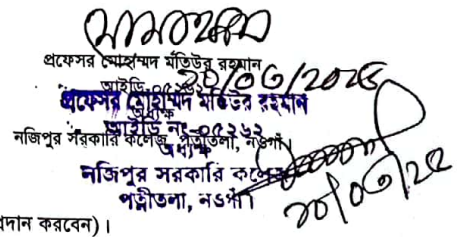 প্রফেসর মোহাম্মদ মতিউর রহমান
আইডি
২০/০৩/২০২৫
প্রফেসর মোহাম্মদ মতিউর রহমান
আইডি নং-০৫২৬২
অধ্যক্ষ
নজিপুর সরকারি কলেজ, পত্নীতলা, নওগাঁ।
অধ্যক্ষ
নজিপুর সরকারি কলেজ
পত্নীতলা, নওগাঁ।
প্রদান করবেন)।